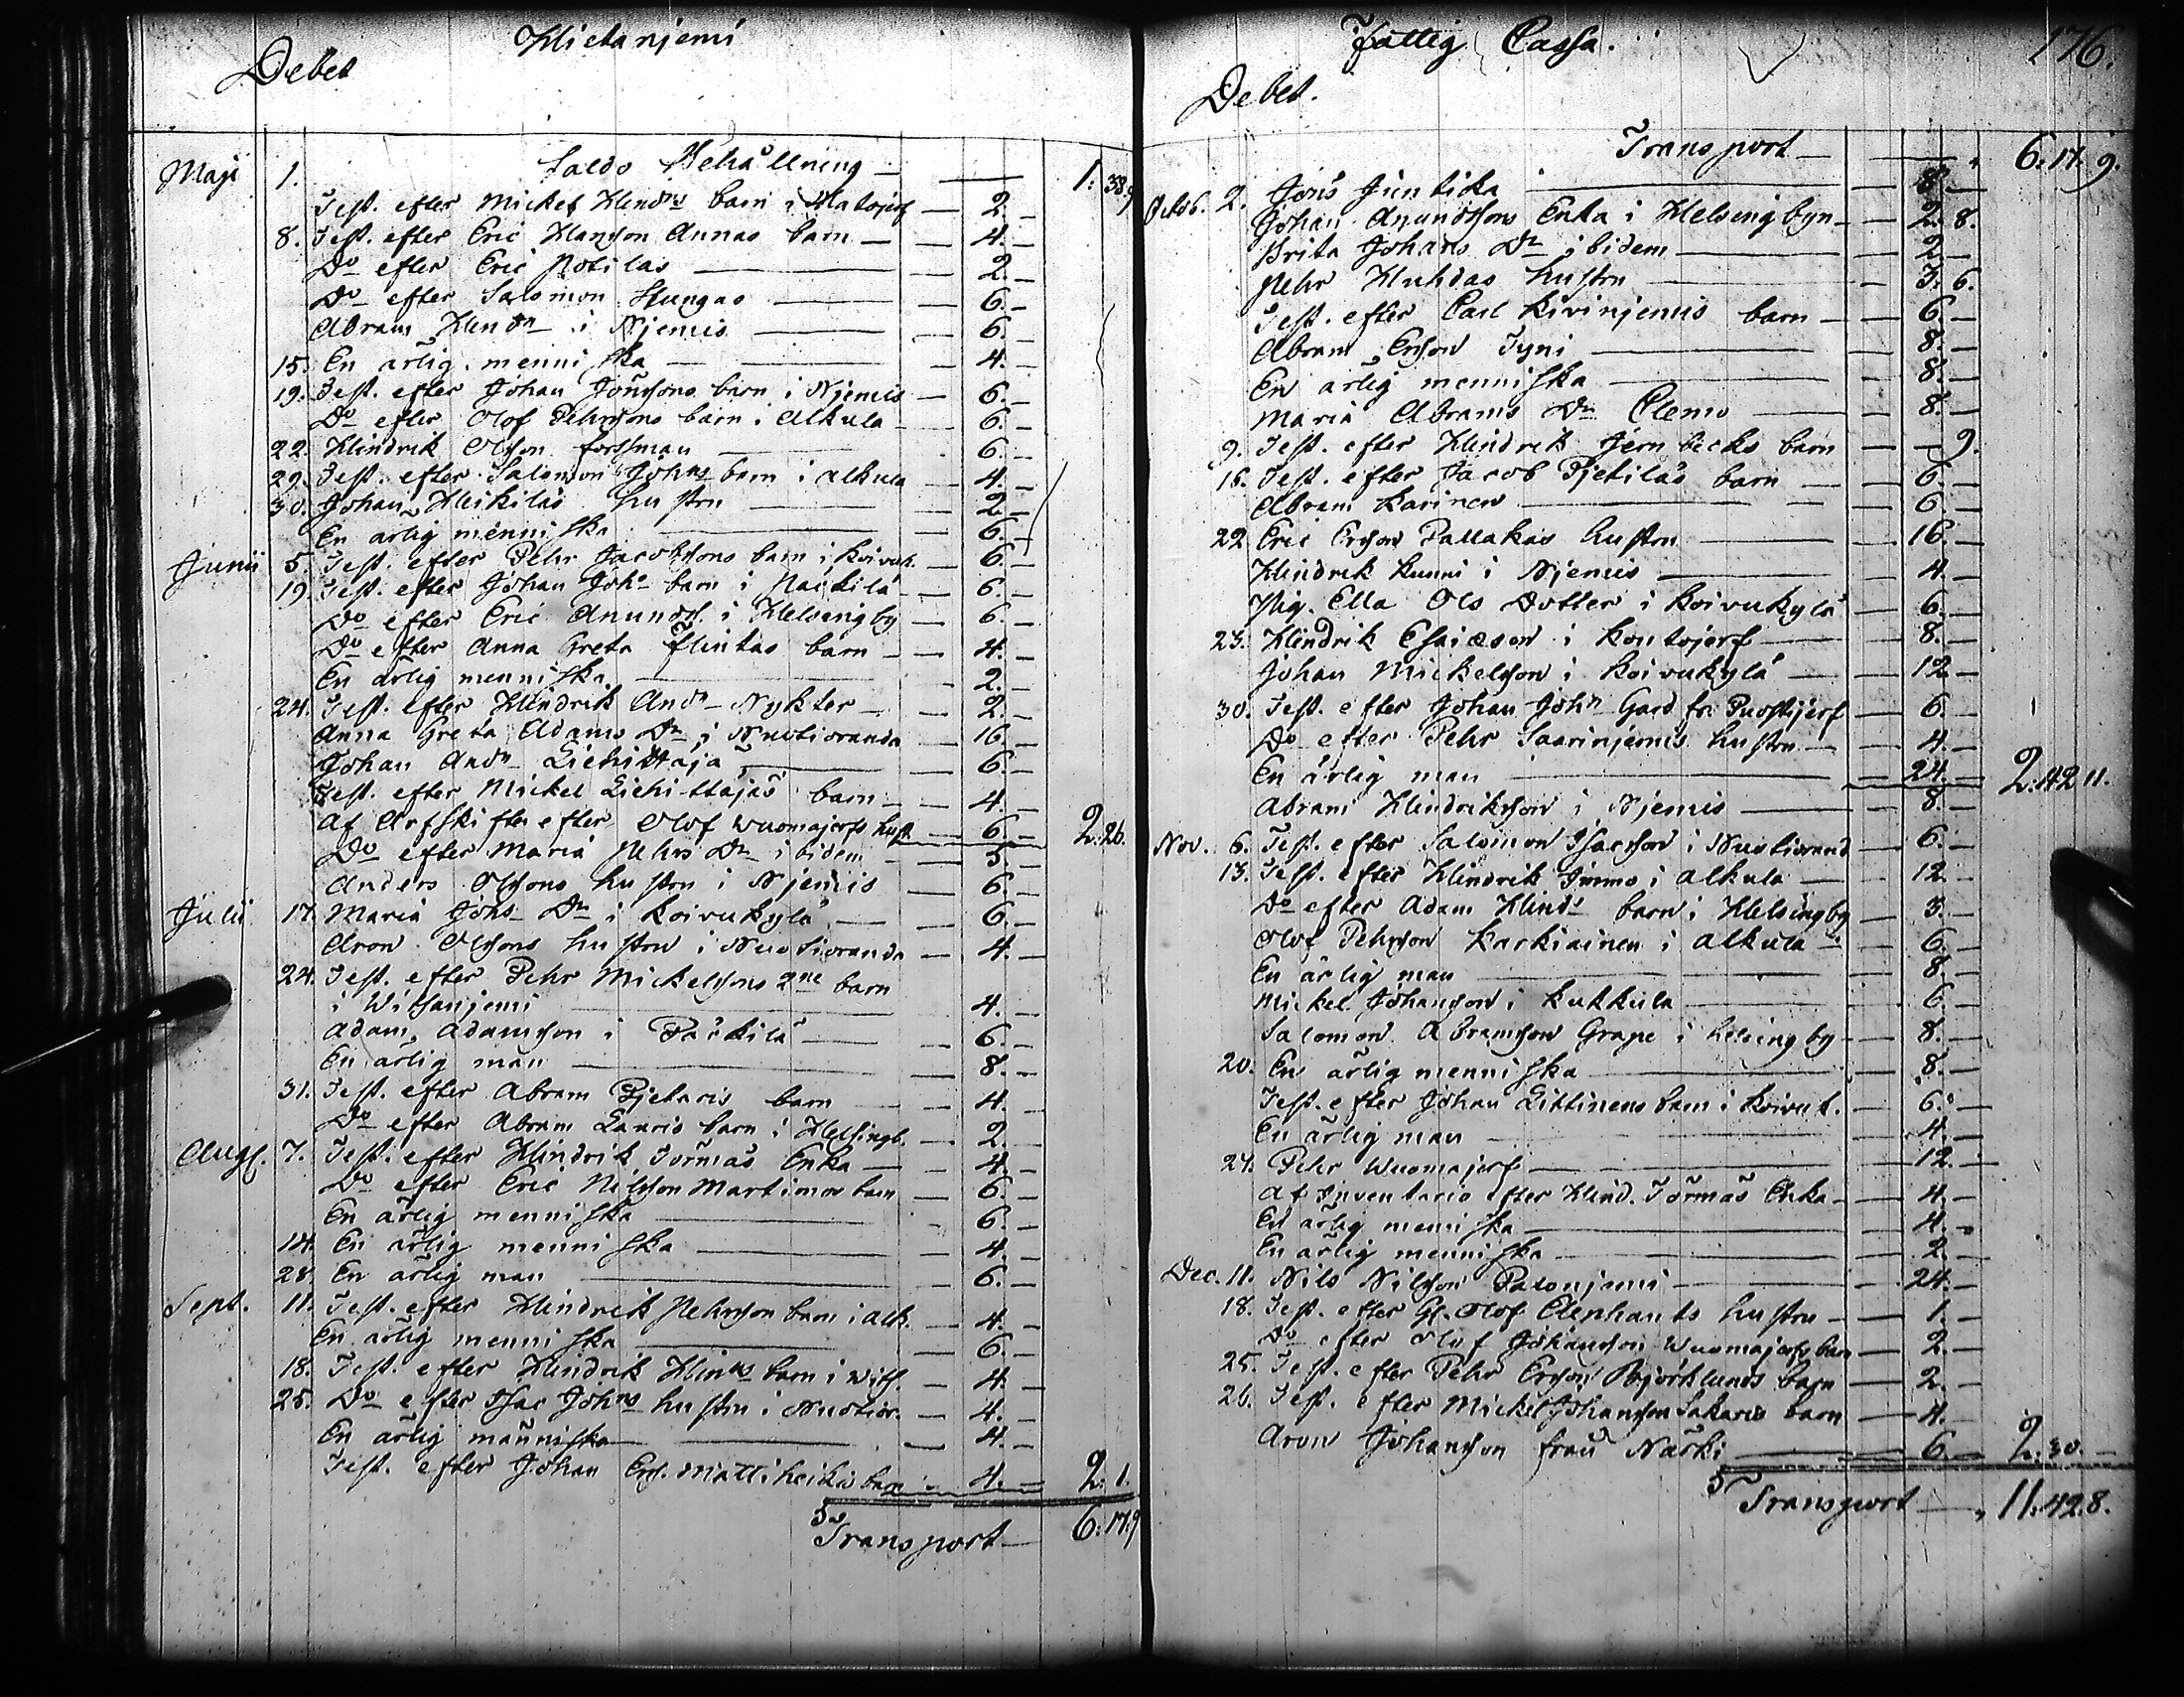 Hietaniemi
Debet
Maji 1. Saldo Behållning — 1: 38. 9
Test. efter Mickel Hendrs barn i Matojerf — 2. —
8. Test. efter Eric Hansson Annas barn — 4. —
Do efter Eric Notilas — 2. —
Do efter Salomon Stungas — 6. —
Abram Hendn i Njemis — 6. —
15. En ärlig menniska — 4. —
19. Test. efter Johan Jönssons barn i Njemis — 6. —
Do efter Olof Pehrsons barn i Alkula — 6. —
22. Hindrik Olsson Forssman — 6. —
29. Test. efter Salomon Johns barn i Alkula — 4. —
30. Johan Heikilas hustru — 2. —
En ärlig menniska — 6. —
Junii 5. Test. efter Pehr Jacobssons barn i Koivuk. — 6. —
19. Test. efter Johan Johs barn i Päckilä — 6. —
Do efter Eric Anundss. i Helsingby — 6. —
Do efter Anna Greta Flintas barn — 4. —
En ärlig menniska — 2. —
24. Test. efter Hindrik Andn Nykter — 2. —
Anna Greta Adams Dr i Nuotioranda — 16. —
Johan Andn Liehittäjä — 6. —
Test. efter Mickel Liehittäjäs barn — 4. —
Af Arfskifte efter Olof Wuomajerfs hust. — 6. — 2: 26.
Do efter Maria Pehrs Dr ibidem — 5. —
Anders Olssons hustru i Njemis — 6. —
Julii 17. Maria Johs Dr i Koivukylä — 6. —
Aron Olssons hustru i Nuotioranda — 4. —
24. Test. efter Pehr Mickelssons 2ne barn
i Witsanjemi — 4. —
Adam Adamsson i Päckilä — 6. —
En ärlig man — 8. —
31. Test. efter Abram Pjetaris barn — 4. —
Do efter Abram Lauris barn i Helsingb. — 2. —
Augs. 7. Test. efter Hindrik Törmäs Enka — 4. —
Do efter Eric Nilsson Martimos barn — 6. —
En ärlig menniska — 6. —
14. En ärlig menniska — 4. —
28. En ärlig man — 6. —
Sept. 11. Test. efter Hindrik Pehrsson barn i Alk. — 4. —
En ärlig menniska — 6. —
18. Test. efter Hindrik Hinrs barn i Wits. — 4. —
25. Do efter Isac Johns hustru i Nuotior. — 4. —
En ärlig människa — 4. —
Test. efter Johan Ers. Mattiheikis barn — 4. — 2: 1.
Transport — 6: 17: 9
Fattig Cassa.
176.
Debet.
Transport — 6: 17. 9.
Octob. 2. Jöns Junticka — 8. —
Johan Anundssons Enka i Helsingbyn — 2. 8.
Brita Johans Dr ibidem — 2. —
Pehr Huhdas hustru — 3. 6.
Test. efter Carl Kivinjemis barn — 6. —
Abram Ersson Tyni — 8. —
En ärlig menniska — 8. —
Maria Abrams Dr Clemo — 8. —
9. Test. efter Hindrik Jernbecks barn — 9.
16. Test. efter Jacob Pjetiläs barn — 6. —
Abram Karinen — 6. —
22 Eric Ersson Pallakas hustru — 16. —
Hindrik Kunni i Njemis — 4. —
Pig. Ella Ols Dotter i Koivukylä — 6. —
23. Hindrik Esaiæson i Kontojerf — 8. —
Johan Mickelsson i Koivukylä — 12. —
30. Test. efter Johan John Gard fr. Puostijerf — 6. —
Do efter Pehr Saarinjemis hustru — 4. —
En ärlig man — 24. — 2: 42 11.
Abram Hindriksson i Njemis — 8. —
Nov. 6. Test. efter Salomon Isacsson i Nuotiorand — 6. —
13. Test. efter Hindrik Immo i Alkula — 12. —
Do efter Adam Hinds barn i Helsingby — 3. —
Olof Pehrsson Karkiainen i Alkula — 6. —
En ärlig man — 8. —
Mickel Johansson i Kukkula — 6. —
Salomon Abramsson Grape i Helsingby — 8. —
20. En ärlig menniska — 8. —
Test. efter Johan Littinens barn i Koivuk. — 6. —
En ärlig man — 4. —
27. Pehr Wuomajerf — 12. —
Af Inventario efter Hind. Törmäs Enka — 4. —
En ärlig menniska — 4. —
En ärlig menniska — 2. —
Dec. 11. Nils Nilsson Palonjemi — 24. —
18. Test. efter Gl. Olof Elenhauts hustru — 1. —
Do efter Olof Johansson Wuomajerfs barn — 2. —
25. Test. efter Pehr Ersson Björklunds barn — 2. —
26. Test. efter Mickel Johansson Sakaris barn — 4. —
Aron Johansson från Närki — 6. — 2: 30. —
Transport — 11: 42. 8.